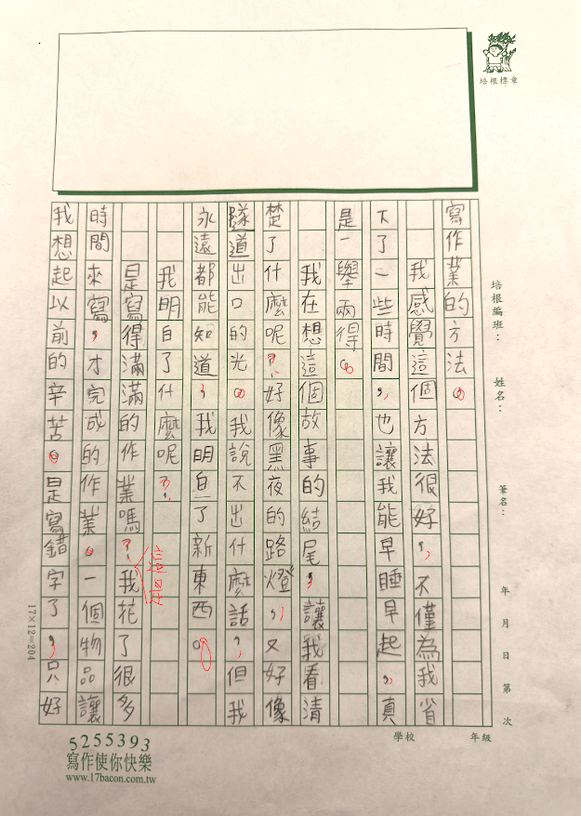 培根標章
培根編班：
姓名：
筆名：
年 月 日 第 次
寫作業的方法。
我感覺這個方法很好，不僅為我省
下了一些時間，也讓我能早睡早起，真
是一舉兩得。
我在想這個故事的結尾，讓我看清
楚了什麼呢？好像黑夜的路燈，又好像
隧道出口的光。我說不出什麼話，但我
永遠都能知道，我明白了新東西。
我明白了什麼呢？
是寫得滿滿的作業嗎？我花了很多
這是
時間來寫，才完成的作業。一個物品讓
我想起以前的辛苦。是寫錯字了，只好
17×12=204
學校 年級
5255393
寫作使你快樂
www.17bacon.com.tw